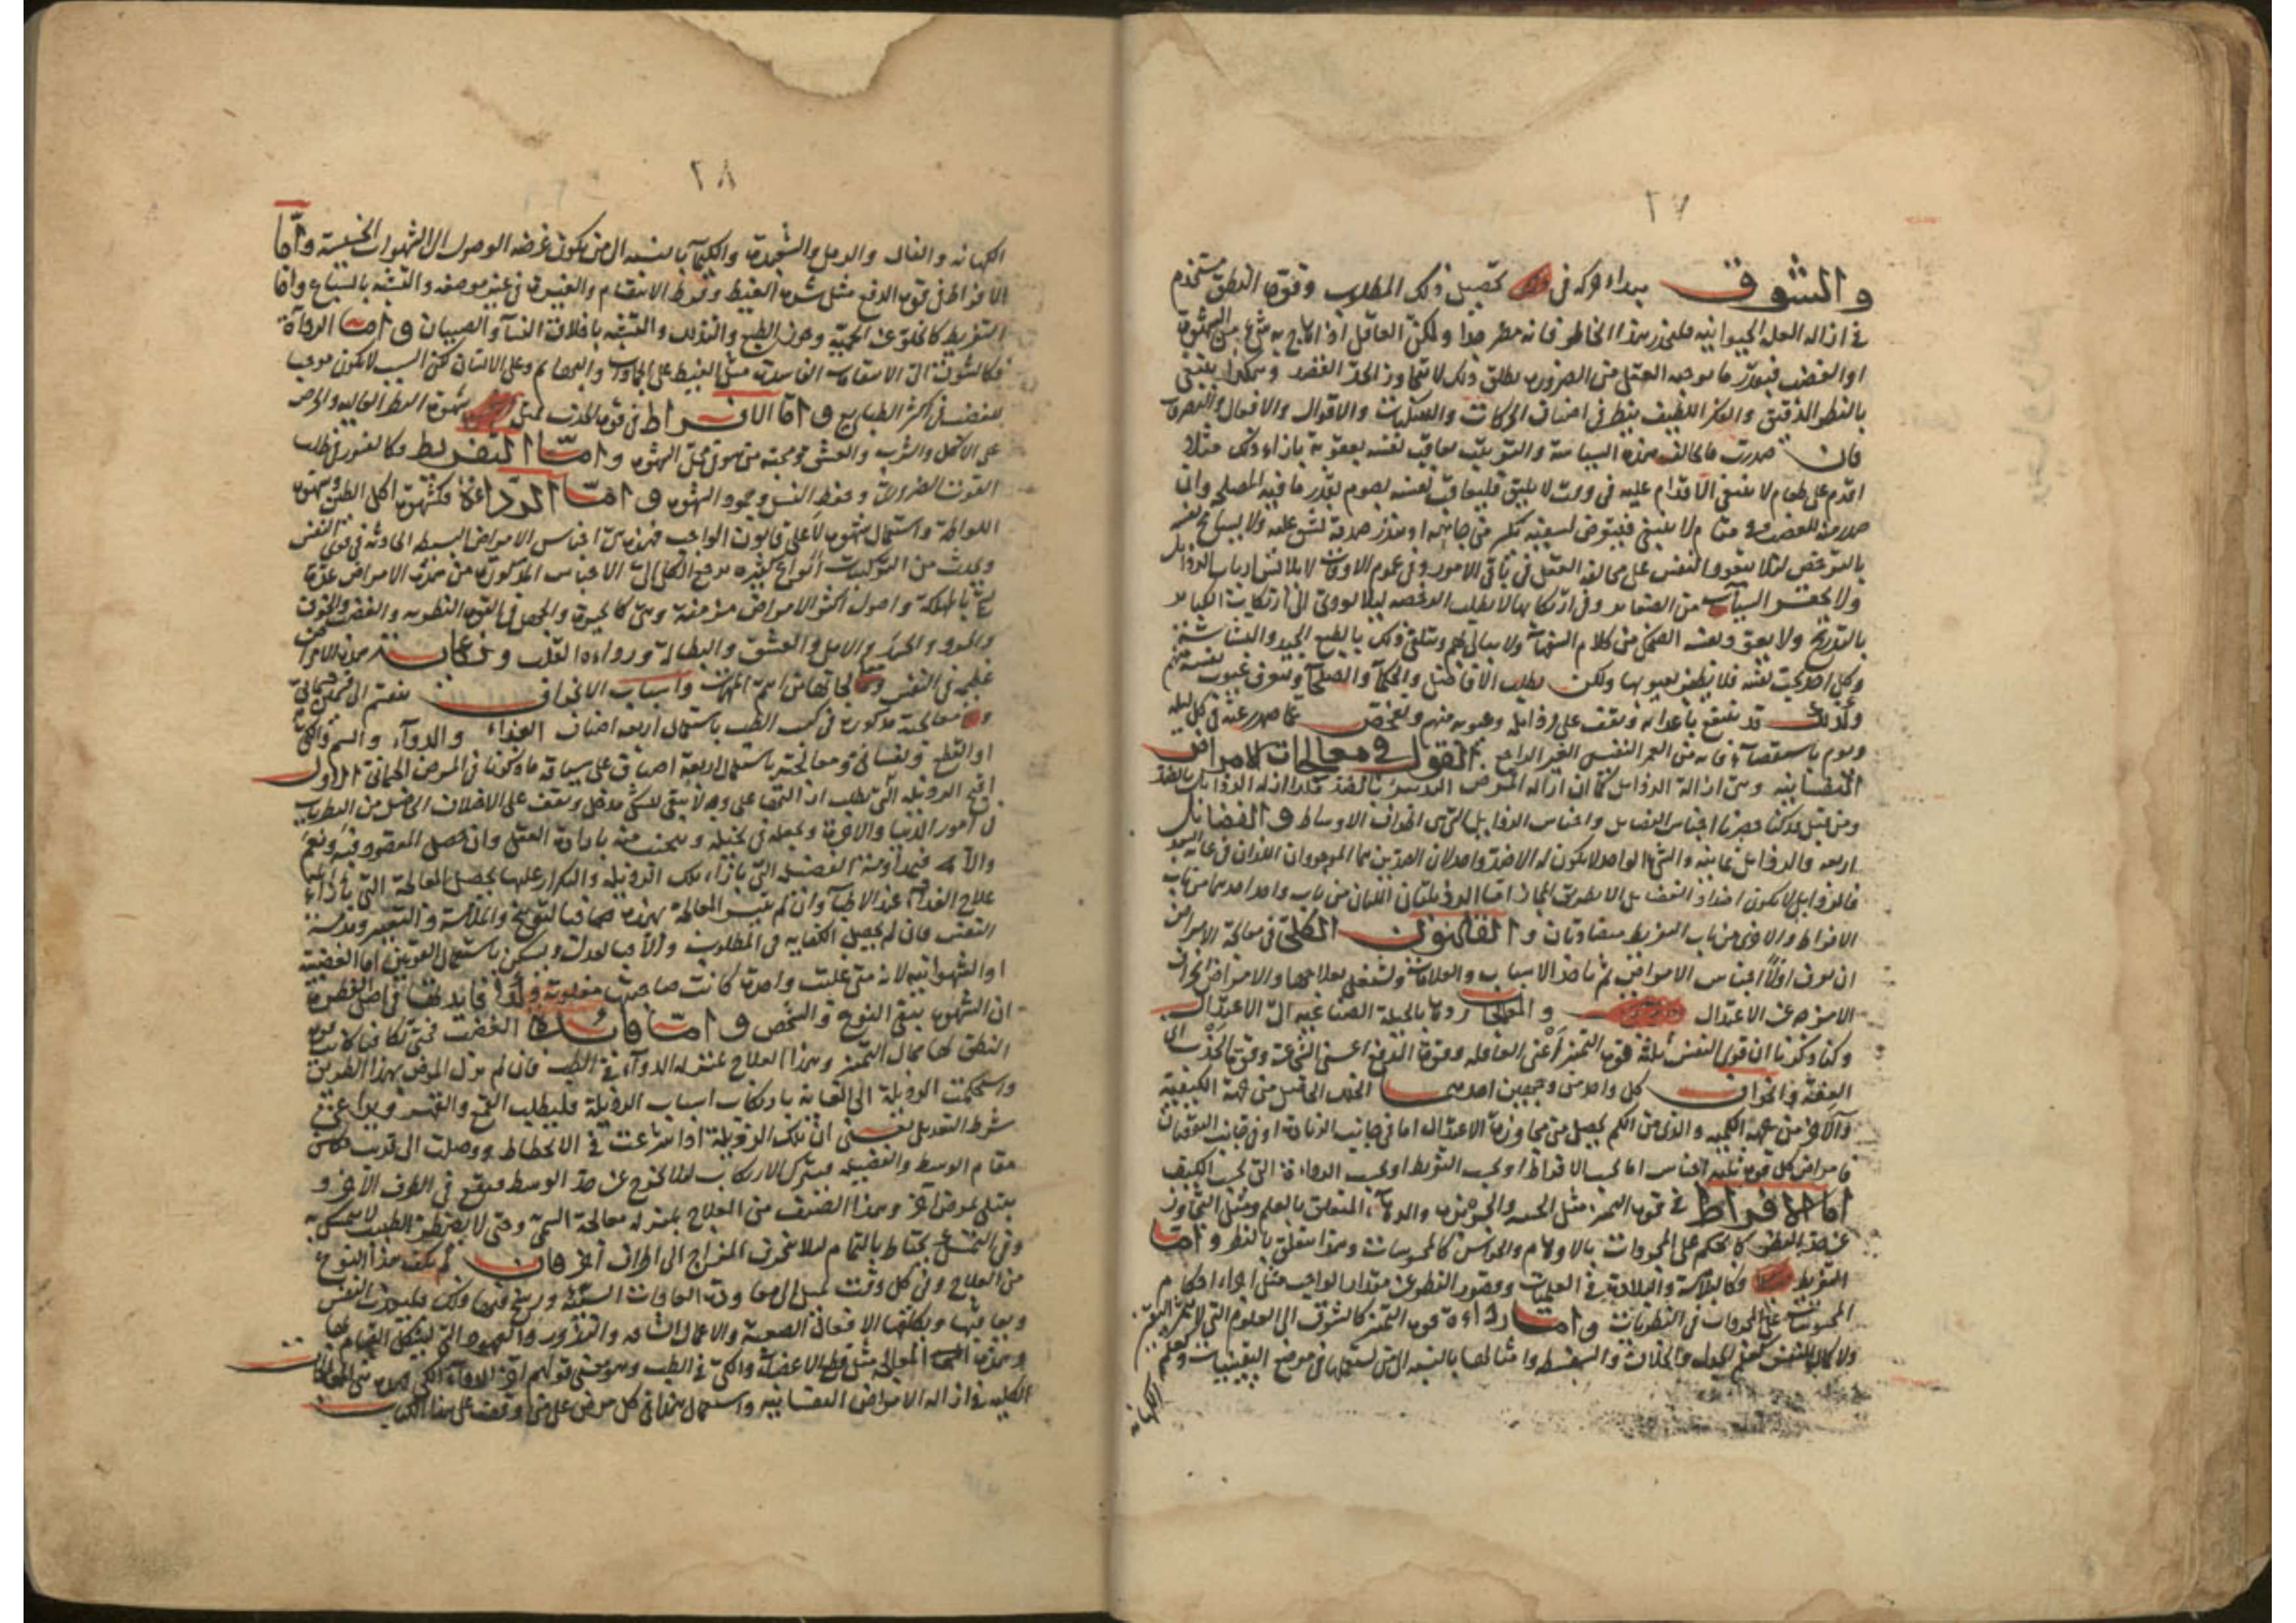 ٢٧
والشوق مبداء الحركة في تحصيل ذلك المطلوب وقوة النطق تستخدم
في ازالة العلة الحيوانية فليحذر هذا الخاطر فانه مضر جدا ولكن العاقل اذا
او الغضب فبقدر ما يوجبه العقل من الضرورة يطلق ذلك لا يتجاوز الحد القصد وهكذا ينبغي
بالنظر الدقيق والفكر اللطيف ينظر في اصناف الحركات والسكنات والاقوال والافعال والتصرفات
فان صدرت مخالفة هذه السياسة والترتيب يعاقب نفسه بعقوبة بازاء ذلك مثلا
اقدم على طعام لا ينبغي الاقدام عليه في وقت لا يليق فليعاقب نفسه بصوم بقدر ما فيه المصلحة وان
صدر منه الغضب في مقام لا ينبغي فيتعرض لسفيه يكسر من جاهه او ينذر صدقة تشق عليه ولا يسامح نفسه
بالترخص لئلا يتعود النفس على مخالفة العقل في باقي الامور وفي عموم الاوقات لا يلابس ارباب الرذايل
ولا يحقر السيئات من الصغاير وفي ارتكابها لا يطلب الرخصة ليلا يودي الى ارتكاب الكباير
بالتدريج
وكل احد يحب نفسه فلا يظن بعيوبها ولكن يطلب الافاضل والحكماء والصلحاء ويتعرف عيوب نفسه منهم
وكذلك قد ينتفع باعدائه ويقف على رذايله وعيوبه منهم ويفحص عما صدر عنه في كل ليلة
ويوم باستقصاء فانه من العمر النفيس الغير الراجع القول في معالجات الامراض
النفسانية وهي ازالة الرذايل كما ان ازالة المرض البدني بالضد فكذا ازالة الرذايل بالضد
ومن قبل قد كنا حصرنا اجناس الفضايل واجناس الرذايل التي هي انحراف الاوساط والفضايل
اربعة والرذايل ثمانية والشيء الواحد لا يكون له الا ضد واحد لان الضدين هما الموجودان اللذان في غاية البعد
فالرذايل لا يكون اضداد الفضايل الا بطريق المجاز اما الرذيلتان اللتان من باب واحد احديهما من باب
الافراط والاخرى من باب التفريط متضادتان والقانون الكلي في معالجة الامراض
ان يعرف اولا اجناس الامراض ثم ناخذ الاسباب والعلامات ونشتغل بعلاجها والامراض انحراف
الامزجة عن الاعتدال والمعالجة ردها بالحيلة الصناعية الى الاعتدال
وكنا ذكرنا ان قوى النفس ثلثة قوة التميز اعني العاقلة وقوة الدفع اعني الشجاعة وقوة الجذب اي
العفة وانحراف كل واحد من وجهين احديهما الخلل الحاصل من جهة الكيفية
والاخر من جهة الكمية والذي من الكم يحصل من مجاوزة الاعتدال اما في جانب الزيادة او في جانب النقصان
فامراض كل قوة ثلثة اجناس اما بحسب الافراط او بحسب التفريط او بحسب الرداءة التي بحسب الكيف
اما الافراط في قوة التميز مثل
عن حد النظر كالحكم على المجردات بالاوهام والحواس كالمحسوسات وهذا متعلق بالنظر واما
التفريط فكالبلاهة والبلادة في العمليات وقصور النظر عن مقدار الواجب مثل اجراء احكام
المحسوسات على المجردات في النظريات واما رداءة قوة التميز كالشوق الى العلوم التي لا تثمر اليقين
ولا كمال للنفس كعلم الجدل والخلاف والسفسطة وامثالها بالنسبة الى من يستعملها في موضع اليقينيات وكعلم
الكهانة
٢٨
الكهانة والفال والرمل والشعبذة والكيمياء بالنسبة الى من يكون غرضه الوصول الى الشهوات الخسيسة واما
الافراط في قوة الدفع مثل شدة الغيظ وفرط الانتقام والغيرة في غير موضعه والتشبه بالسباع واما
التفريط كالخلو عن الحمية وخور الطبع والتذلل والتشبه باخلاق النساء والصبيان واما الرداءة
فكالشوق الى الانتقامات الفاسدة مثل الغيظ على الجمادات والبهايم وعلى الانسان لكن السبب لا يكون موجب
للغضب في اكثر الطبايع واما الافراط في قوة الجذب فمثل شهوة البطن الغالبة والحرص
على الاكل والشرب والعشق ومحبة من تهوى محل الشهوة واما التفريط فكالفتور في طلب
القوت الضروري وحفظ النسل وخمود الشهوة واما الرداءة فكشهوة اكل الطين وشهوة
اللواطة واستعمال الشهوة لا على قانون الواجب فهذه هي اجناس الامراض البسيطة الحادثة في قوى النفس
ويحدث من التركيبات انواع كثيرة مرجع الكل الى الاجناس المذكورة من هذه الامراض عدة
تسمى بالمهلكة واصول اكثر الامراض مزمنة وهي كالحيرة والجهل في القوة النظرية والغضب والخوف
والحزن والحسد والامل والعشق والبطالة ورداءة القلب ونكاية هذه الامراض
عظيمة في النفس ومعالجاتها من اهم المهمات واسباب الانحراف ينقسم الى قسمين جسماني
ومعالجته مذكورة في كتب الطب باستعمال اربعة اصناف الغذاء والدواء والسم والكي
او القطع ونفساني ومعالجته باستعمال اربعة اصناف على سياقة ما ذكرنا في المرض الجسماني الاول
قبح الرذيلة التي يطلب ازالتها على وجه لا يبقى للشك مدخل ويقف على الاختلال الحاصل من
في امور الدنيا والاخرة ويجعله في تخيله ويجتنب عنه بارادة العقل وان حصل المقصود فيه ونعم
والا فبمداومة الفضيلة التي بازاء تلك الرذيلة والتكرار عليها يحصل المعالجة التي بازاء
علاج الغذاء عند الاطباء وان لم تتيسر المعالجة بهذه معا فبالتوبيخ والملامة والتعيير ومذمة
النفس فان لم يحصل الكفاية في المطلوب والا فيعدل ويسكن باستعمال القوتين اما الغضبية
او الشهوانية لانه متى غلبت واحدة كانت صاحبتها مغلوبة وايضا فايدتها في اصل الفطرة
ان الشهوة يبقى النوع والشخص واما فايدة الغضب فحتى تكافيا كانت لقوة
النطق لها مجال التميز وهذا العلاج بمنزلة الدواء في الطب فان لم يزل المرض بهذا الطريق
واستحكمت الرذيلة الى الغاية بارتكاب اسباب الرذيلة فليطلب القمع والقهر ويراعي في
شرط التعديل يعني ان تلك الرذيلة اذا شرعت في الانحطاط ووصلت الى قريب من
مقام الوسط والفضيلة فيترك الارتكاب لئلا يخرج عن حد الوسط فيقع في الطرف الاخر و
يبتلى بمرض اخر وهذا الصنف من العلاج بمنزلة معالجة السمي وحتى لا يضطر الطبيب لا يتمسك به
وفي التمسك يحتاط بالتمام ليلا ينحرف المزاج الى اطراف اخر فان لم يكف هذا النوع
من العلاج وفي كل وقت تميل الى معاودة العادات السيئة ورسخ فيها ذلك فليعذب النفس
ويعاقبها ويكلفها الافعال الصعبة والاعمال الشاقة والنذور والعهود التي يشكل القيام بها
وهذه المعالجة مثل قطع الاعضاء والكي في الطب وهو معنى قولهم اخر الدواء الكي فهذه هي المعالجات
الكلية في ازالة الامراض النفسانية واستعمال هذا في كل مرض على من وقف على هذا الكتاب